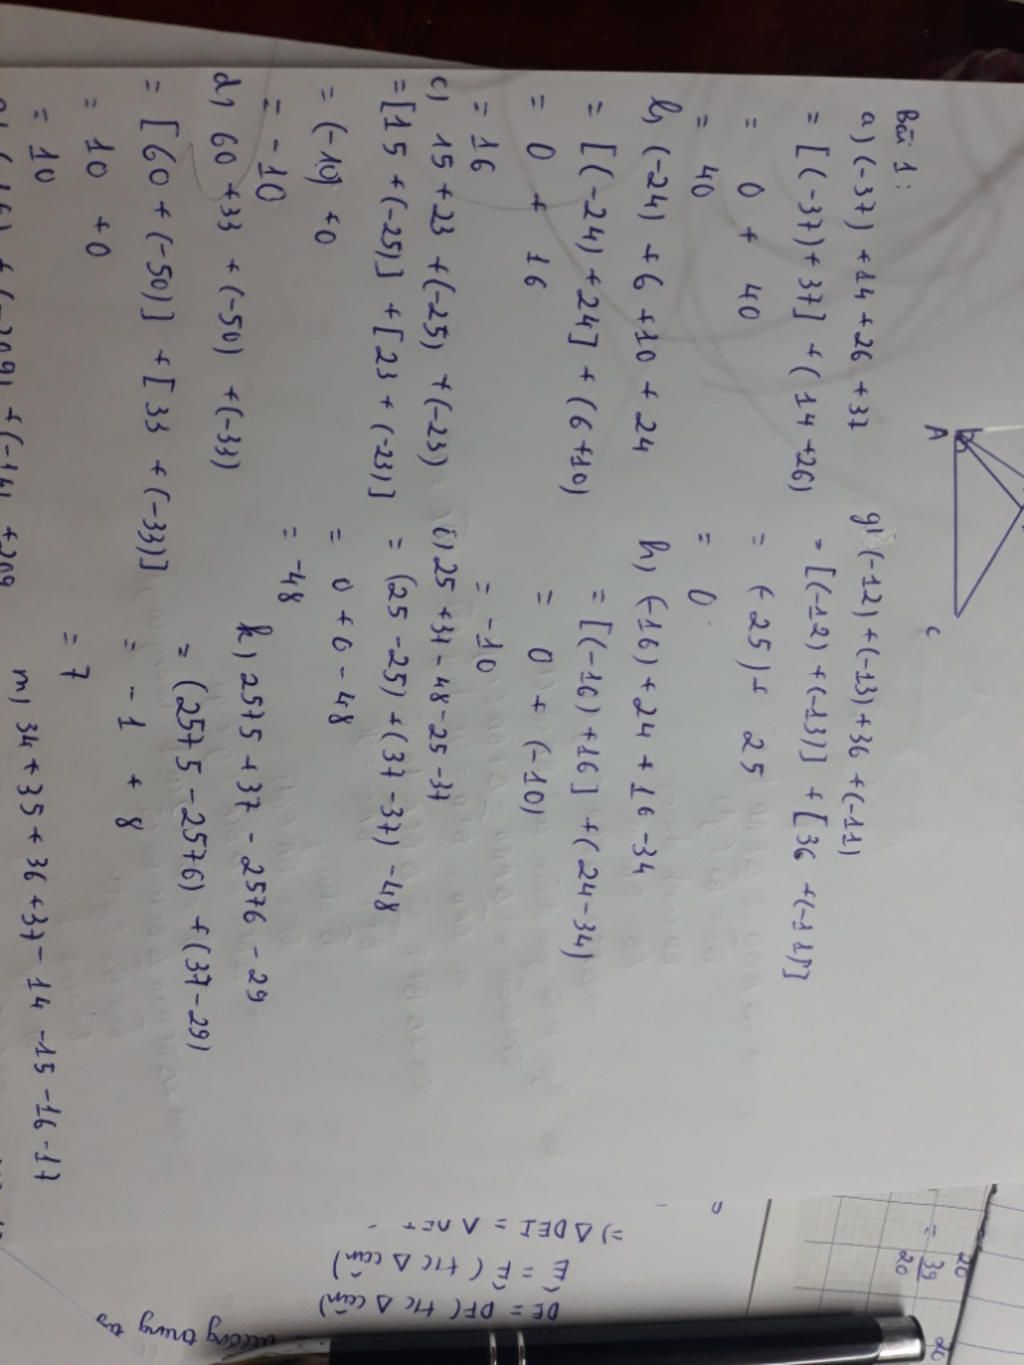 Bài 1:
a) (-37) + 14 + 26 + 37
= [(-37) + 37] + (14 + 26)
= 0 + 40
= 40
b) (-24) + 6 + 10 + 24
= [(-24) + 24] + (6 + 10)
= 0 + 16
= 16
c) 15 + 23 + (-25) + (-23)
= [15 + (-25)] + [23 + (-23)]
= (-10) + 0
= -10
d) 60 + 33 + (-50) + (-33)
= [60 + (-50)] + [33 + (-33)]
= 10 + 0
= 10
+ (-209) + (-14) + 209
A
C
g) (-12) + (-13) + 36 + (-11)
= [(-12) + (-13)] + [36 + (-11)]
= (-25) + 25
= 0
h) (-16) + 24 + 16 - 34
= [(-16) + 16] + (24 - 34)
= 0 + (-10)
= -10
i) 25 + 37 - 48 - 25 - 37
= (25 - 25) + (37 - 37) - 48
= 0 + 0 - 48
= -48
k) 2575 + 37 - 2576 - 29
= (2575 - 2576) + (37 - 29)
= -1 + 8
= 7
m) 34 + 35 + 36 + 37 - 14 - 15 - 16 - 17
20
= 39/20
DE = DF (t/c Δ cân)
Ê = F̂ (t/c Δ cân)
=> Δ DEI = Δ
đường trung